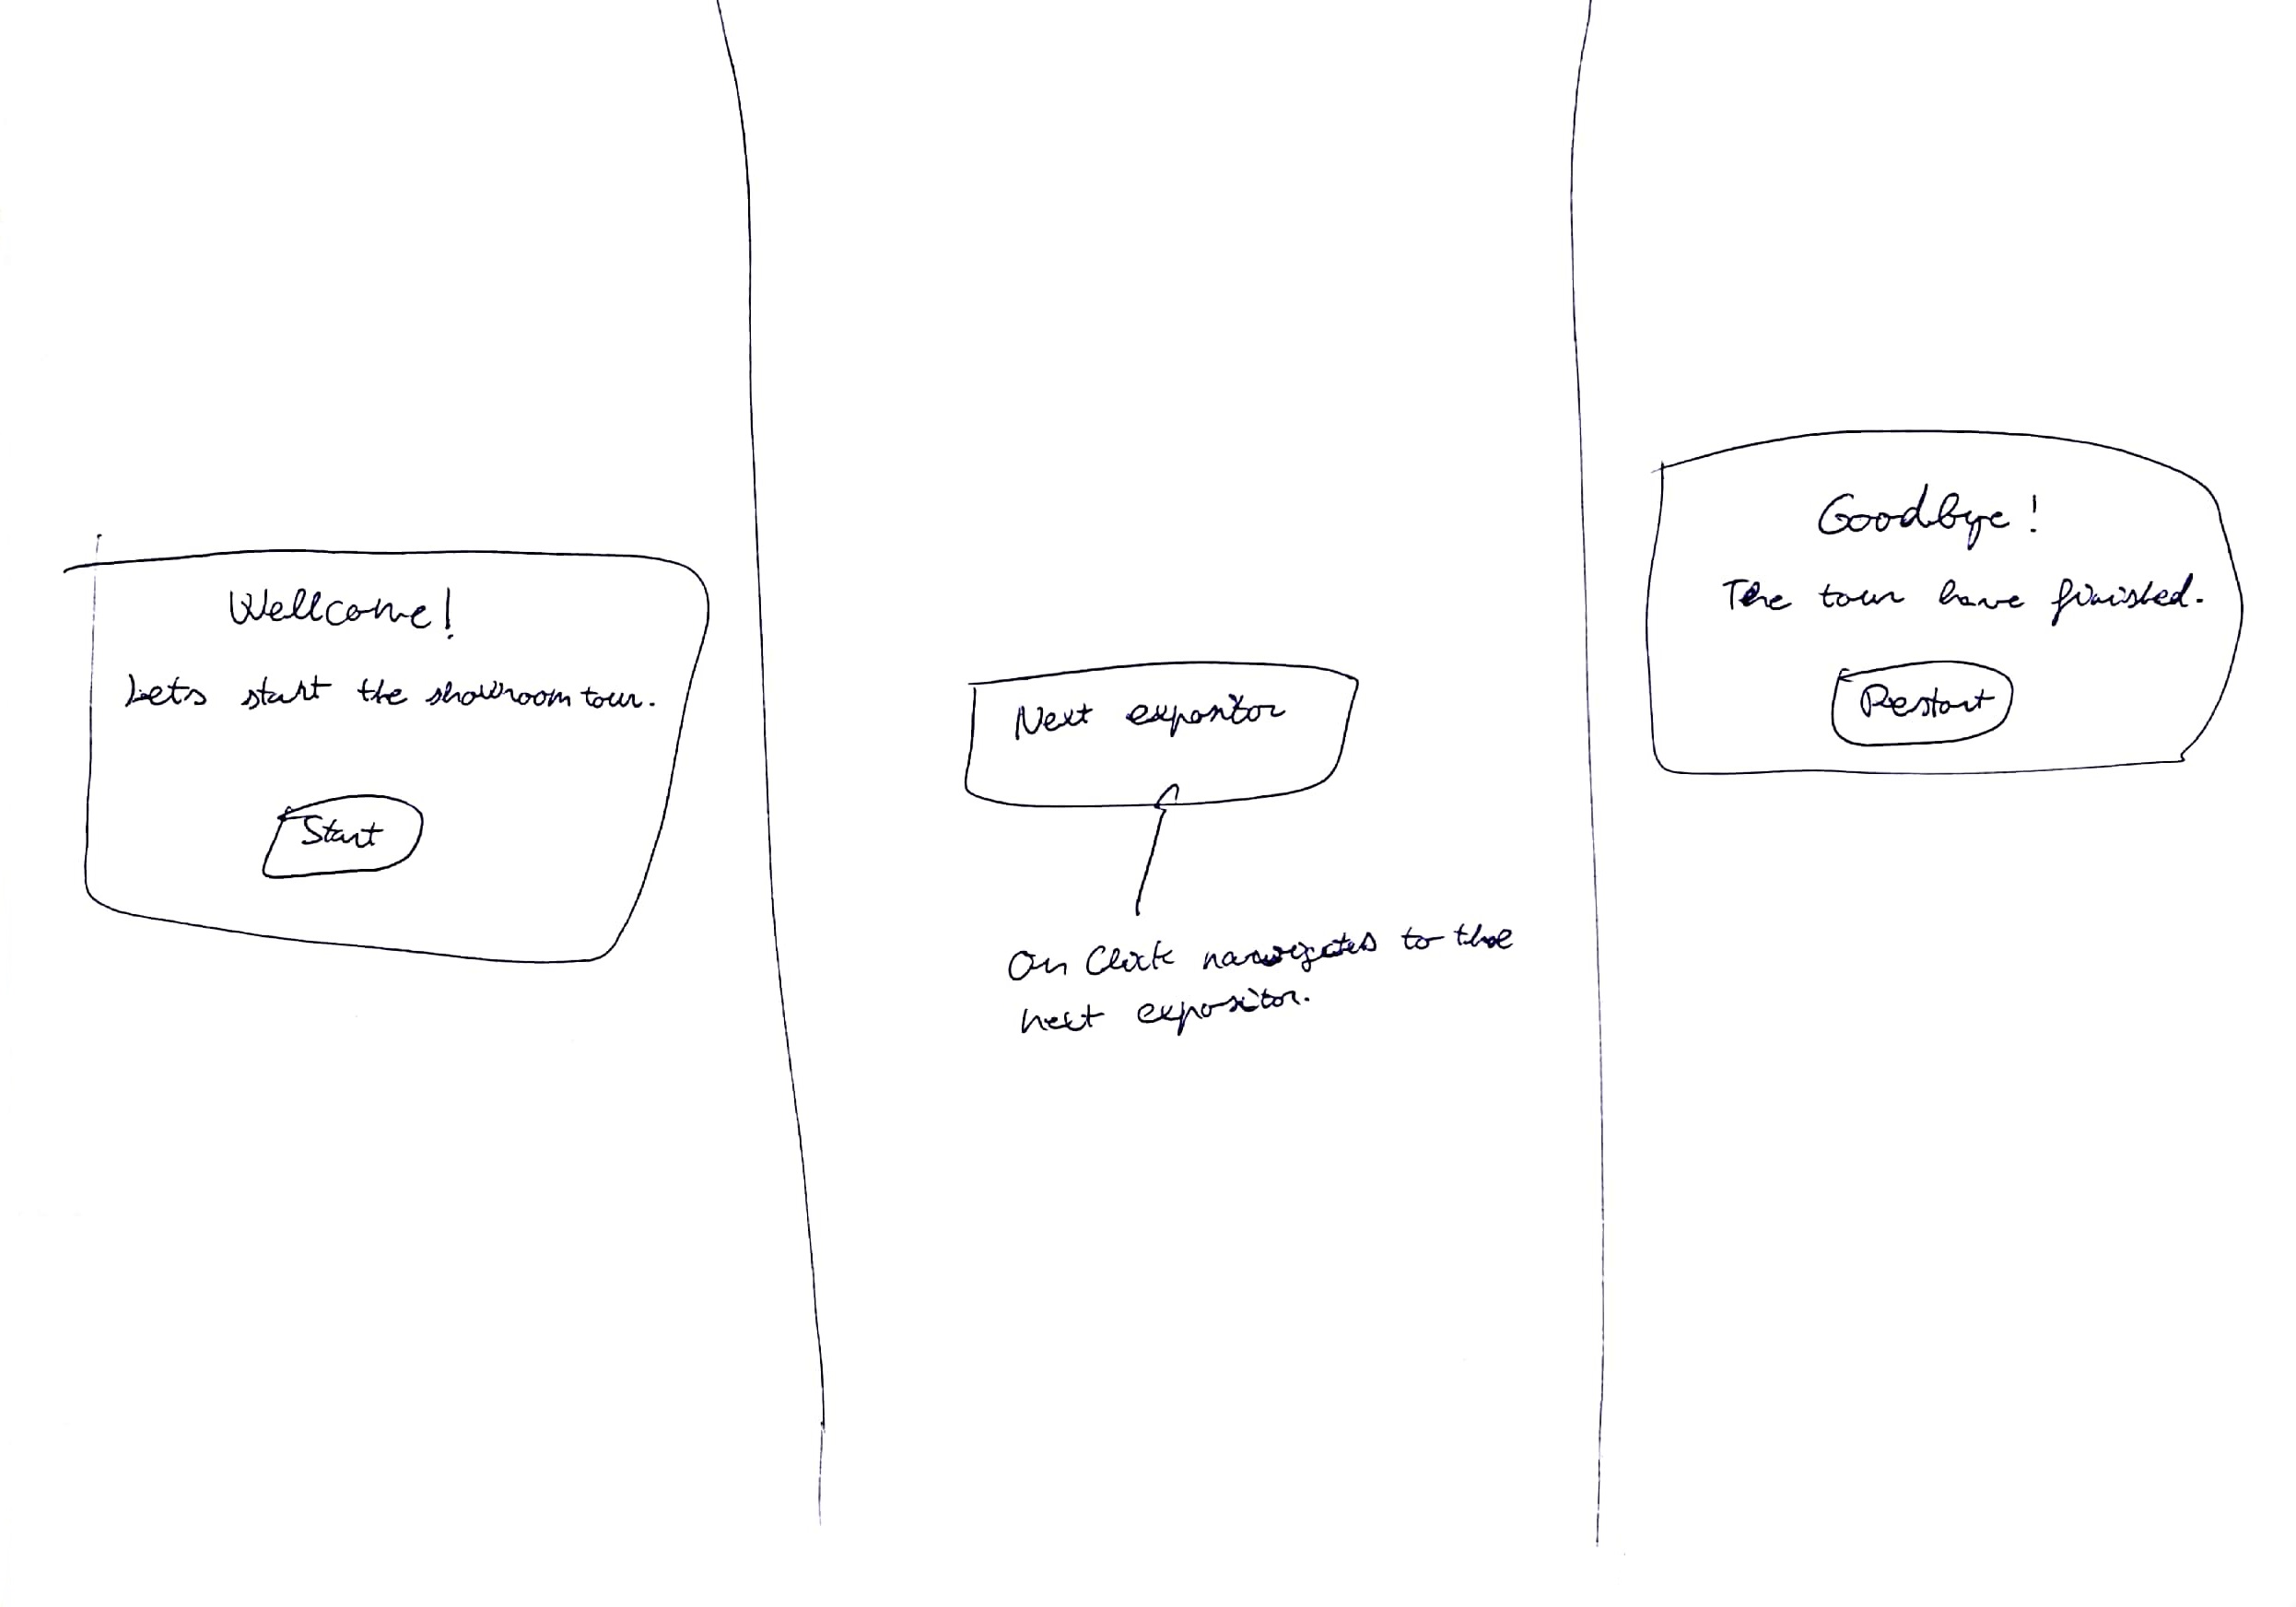 Wellcome!
Lets start the showroom tour.
Start
Next expositor
On Click navigates to the
next expositor.
Goodbye!
The tour have finished.
Restart